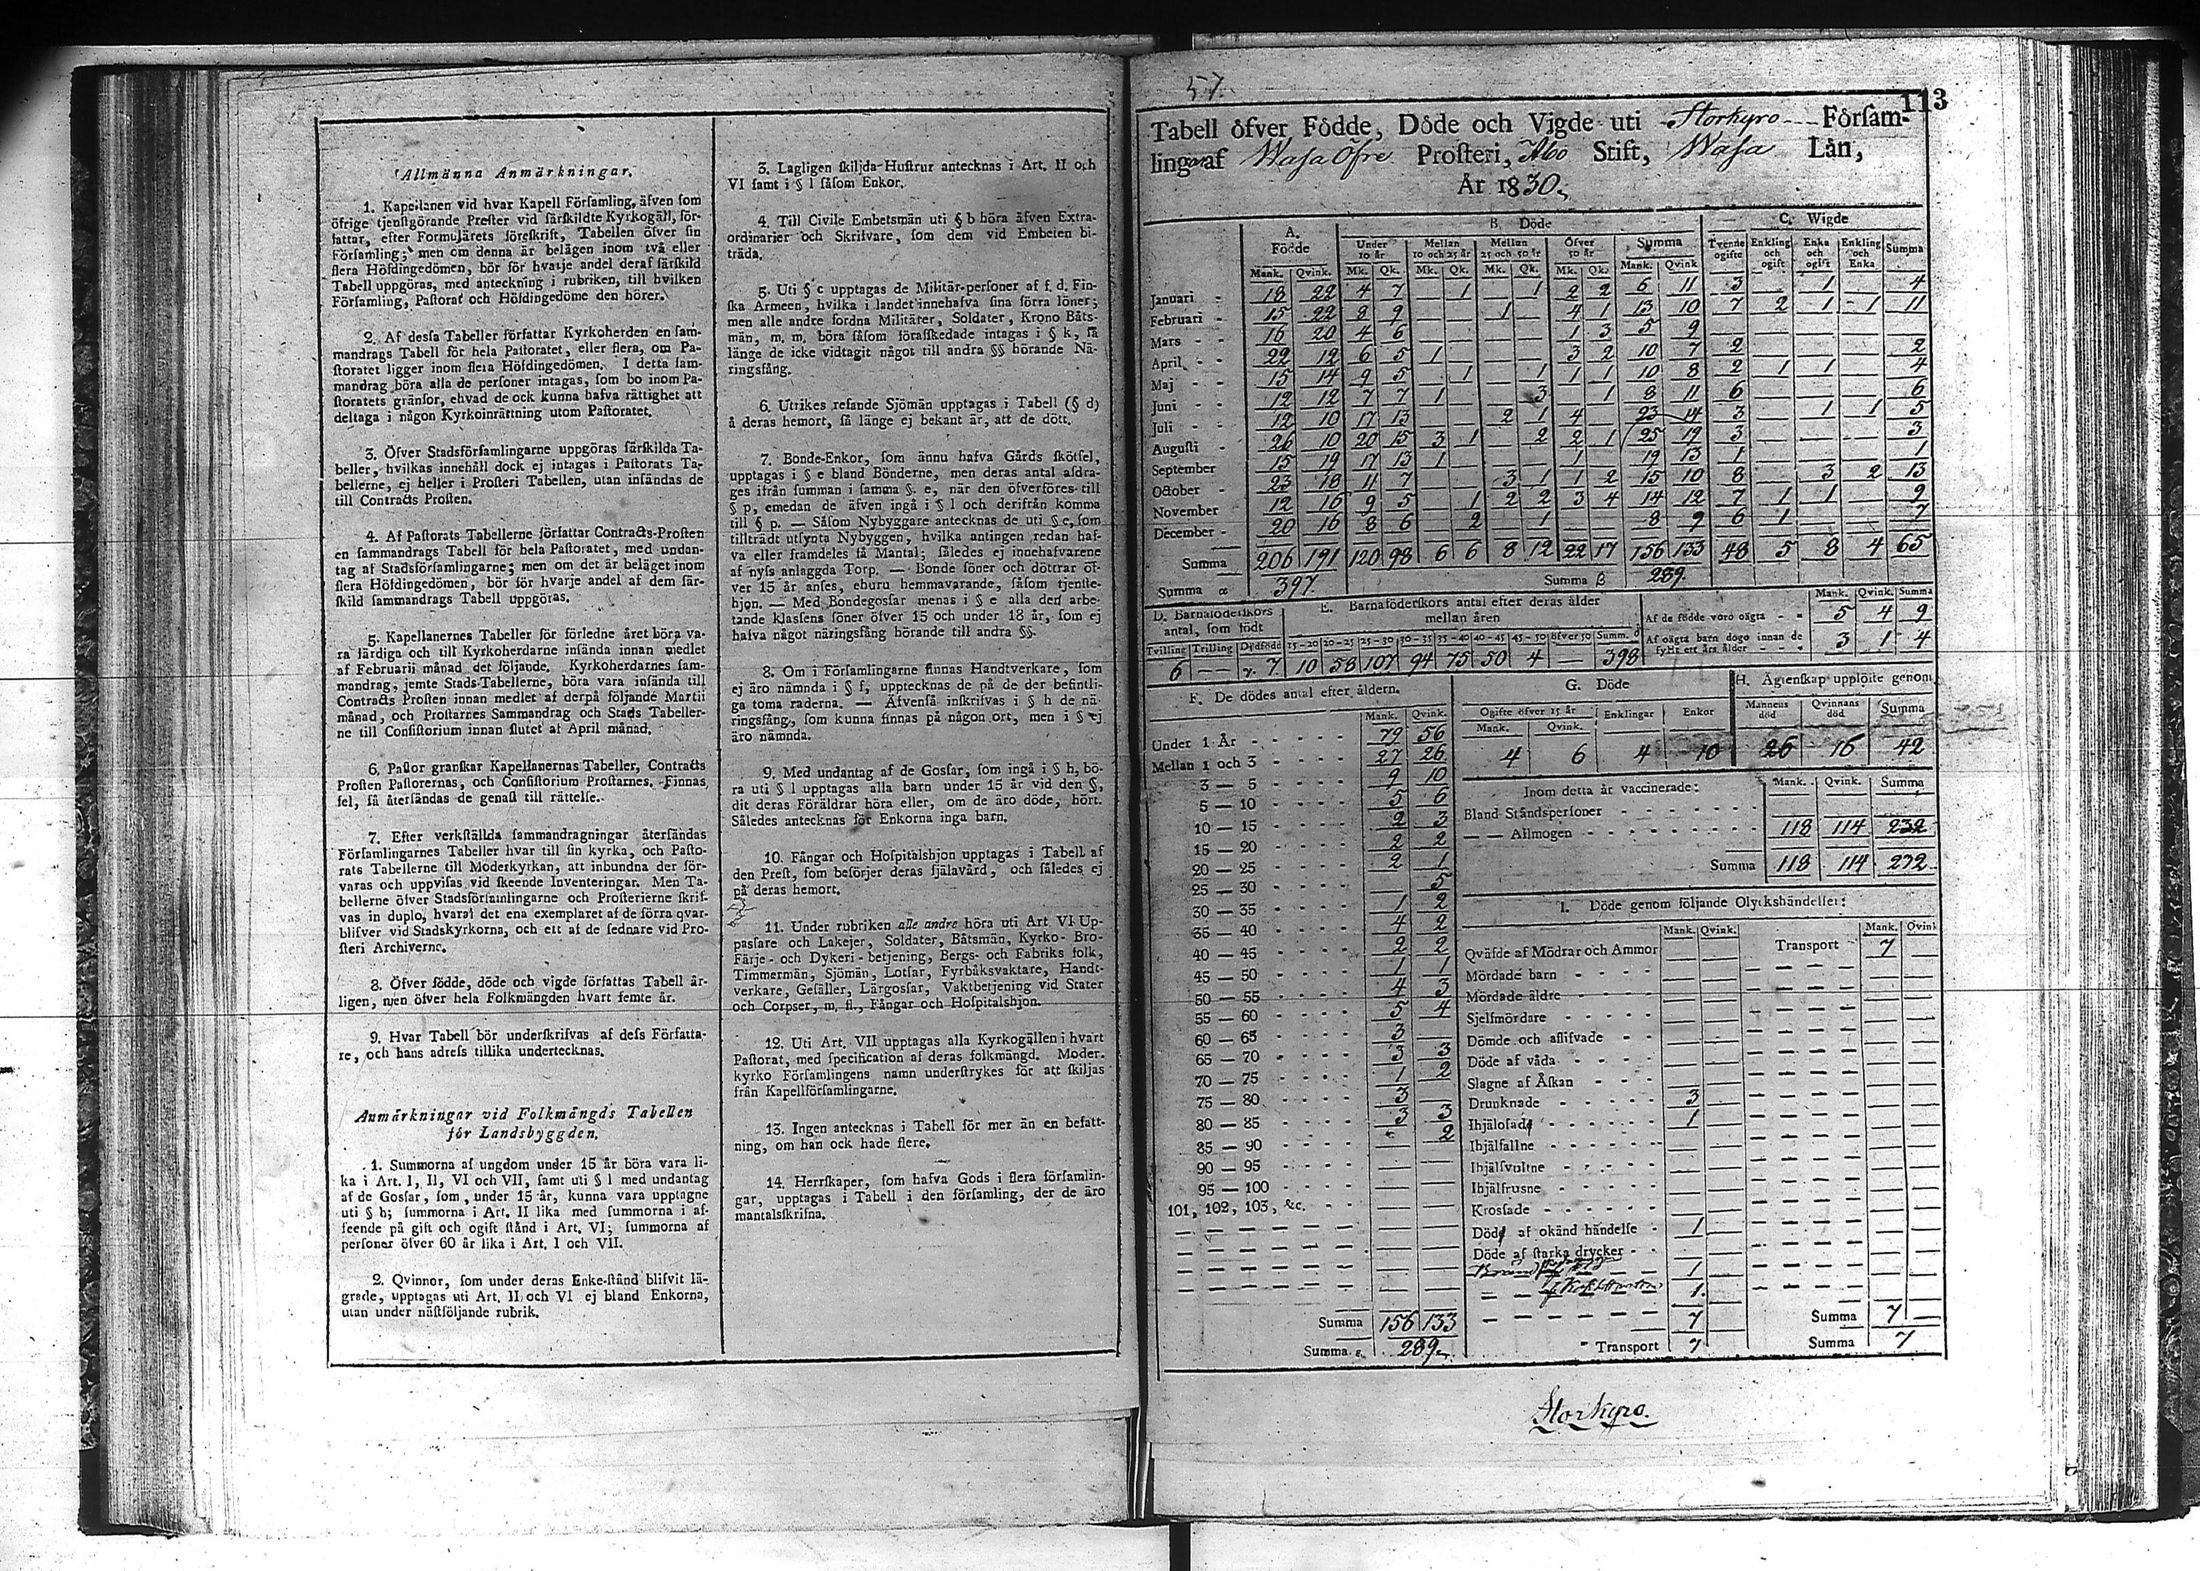 Allmänna Anmärkningar.
1. Kapellanen vid hvar Kapell Församling, äfven som
öfrige tjenstgörande Prester vid särskildte Kyrkogäll, för-
fattar, efter Formulärets föreskrift, Tabellen öfver sin
Församling; men om denna är belägen inom två eller
flera Höfdingedömen, bör för hvarje andel deraf särskild
Tabell uppgöras, med anteckning i rubriken, till hvilken
Församling, Pastorat och Höfdingedöme den hörer.
2. Af dessa Tabeller författar Kyrkoherden en sam-
mandrags Tabell för hela Pastoratet, eller flera, om Pa-
storatet ligger inom flera Höfdingedömen. I detta sam-
mandrag böra alla de personer intagas, som bo inom Pa-
storatets gränsor, ehvad de ock kunna hafva rättighet att
deltaga i någon Kyrkoinrättning utom Pastoratet.
3. Öfver Stadsförsamlingarne uppgöras särskilda Ta-
beller, hvilkas innehåll dock ej intagas i Pastorats Ta-
bellerne, ej heller i Prosteri Tabellen, utan insändas de
till Contracts Prosten.
4. Af Pastorats Tabellerne författar Contracts-Prosten
en sammandrags Tabell för hela Pastoratet, med undan-
tag af Stadsförsamlingarne; men om det är beläget inom
flera Höfdingedömen, bör för hvarje andel af dem sär-
skild sammandrags Tabell uppgöras.
5. Kapellanernes Tabeller för förledne året böra va-
ra färdiga och till Kyrkoherdarne insända innan medlet
af Februarii månad det följande. Kyrkoherdarnes sam-
mandrag, jemte Stads-Tabellerne, böra vara insända till
Contracts Prosten innan medlet af derpå följande Martii
månad, och Prostarnes Sammandrag och Stads Tabeller-
ne till Consistorium innan slutet af April månad.
6. Pastor granskar Kapellanernas Tabeller, Contracts
Prosten Pastorernas, och Consistorium Prostarnes. Finnas
fel, så återsändas de genast till rättelse.
7. Efter verkställda sammandragningar återsändas
Församlingarnes Tabeller hvar till sin kyrka, och Pasto-
rats Tabellerne till Moderkyrkan, att inbundna der för-
varas och uppvisas vid skeende Inventeringar. Men Ta-
bellerne öfver Stadsförsamlingarne och Prosterierne skrif-
vas in duplo, hvaraf det ena exemplaret af de förra qvar-
blifver vid Stadskyrkorna, och ett af de sednare vid Pro-
steri Archiverne.
8. Öfver födde, döde och vigde författas Tabell år-
ligen, men öfver hela Folkmängden hvart femte år.
9. Hvar Tabell bör underskrifvas af dess Författa-
re, och hans adress tillika undertecknas.
Anmärkningar vid Folkmängds Tabellen
för Landsbyggden.
1. Summorna af ungdom under 15 år böra vara li-
ka i Art. I, II, VI och VII, samt uti § l med undantag
af de Gossar, som, under 15 år, kunna vara upptagne
uti § h; summorna i Art. II lika med summorna i af-
seende på gift och ogift stånd i Art. VI; summorna af
personer öfver 60 år lika i Art. I och VII.
2. Qvinnor, som under deras Enke-stånd blifvit lä-
grade, upptagas uti Art. II och VI ej bland Enkorna,
utan under nästföljande rubrik.
3. Lagligen skiljda Hustrur antecknas i Art. II och
VI samt i § l såsom Enkor.
4. Till Civile Embetsmän uti § b höra äfven Extra-
ordinarier och Skrifvare, som dem vid Embeten bi-
träda.
5. Uti § c upptagas de Militär-personer af f. d. Fin-
ska Armeen, hvilka i landet innehafva sina förra löner;
men alle andre fordna Militärer, Soldater, Krono Båts-
män, m. m. böra såsom förafskedade intagas i § k, så
länge de icke vidtagit något till andra §§ hörande Nä-
ringsfång.
6. Utrikes resande Sjömän upptagas i Tabell (§ d)
å deras hemort, så länge ej bekant är, att de dött.
7. Bonde-Enkor, som ännu hafva Gårds skötsel,
upptagas i § e bland Bönderne, men deras antal afdra-
ges ifrån summan i samma §. e, när den öfverföres till
§ p, emedan de äfven ingå i § l och derifrån komma
till § p. — Såsom Nybyggare antecknas de uti § e, som
tillträdt utsynta Nybyggen, hvilka antingen redan haf-
va eller framdeles få Mantal; således ej innehafvarene
af nyss anlaggda Torp. — Bonde söner och döttrar öf-
ver 15 år anses, ehuru hemmavarande, såsom tjenste-
hjon. — Med Bondegossar menas i § e alla den arbe-
tande klassens söner öfver 15 och under 18 år, som ej
hafva något näringsfång hörande till andra §§.
8. Om i Församlingarne finnas Handtverkare, som
ej äro nämnda i § f, upptecknas de på de der befintli-
ga toma raderna. — Äfvenså inskrifvas i § h de nä-
ringsfång, som kunna finnas på någon ort, men i § ej
äro nämnda.
9. Med undantag af de Gossar, som ingå i § h, bö-
ra uti § l upptagas alla barn under 15 år vid den §,
dit deras Föräldrar höra eller, om de äro döde, hört.
Således antecknas för Enkorna inga barn.
10. Fångar och Hospitalshjon upptagas i Tabell af
den Prest, som besörjer deras själavård, och således ej
på deras hemort.
11. Under rubriken alle andre höra uti Art VI Up-
passare och Lakejer, Soldater, Båtsmän, Kyrko- Bro-
Färje- och Dykeri-betjening, Bergs- och Fabriks folk,
Timmermän, Sjömän, Lotsar, Fyrbåksvaktare, Handt-
verkare, Gesäller, Lärgossar, Vaktbetjening vid Stater
och Corpser, m. fl., Fångar och Hospitalshjon.
12. Uti Art. VII upptagas alla Kyrkogällen i hvart
Pastorat, med specification af deras folkmängd. Moder-
kyrko Församlingens namn understrykes för att skiljas
från Kapellförsamlingarne.
13. Ingen antecknas i Tabell för mer än en befatt-
ning, om han ock hade flere.
14. Herrskaper, som hafva Gods i flera församlin-
gar, upptagas i Tabell i den församling, der de äro
mantalsskrifna.
57.
113
Tabell öfver Födde, Döde och Vigde uti Storkyro Försam-
lingar af Wasa Öfre Prosteri, Åbo Stift, Wasa Län,
År 1830.
A. Födde B. Döde C. Wigde
Under 10 år Mellan 10 och 25 år Mellan 25 och 50 år Öfver 50 år Summa Tvenne ogifte Enkling och ogift Enka och ogift Enkling och Enka Summa
Mank. Qvink. Mk. Qk. Mk. Qk. Mk. Qk. Mk. Qk. Mank. Qvink
Januari 18 22 4 7 — 1 — 1 2 2 6 11 3 — 1 — 4
Februari 15 22 8 9 — — 1 — 4 1 13 10 7 2 1 1 11
Mars 16 20 4 6 — — — — 1 3 5 9 — — — — —
April 22 12 6 5 1 — — — 3 2 10 7 2 — — — 2
Maj 15 14 9 5 — 1 — 1 1 1 10 8 2 1 1 — 4
Juni 12 12 7 7 1 — — 3 — 1 8 11 6 — — — 6
Juli 12 10 17 13 — — 2 1 4 — 23 14 3 — 1 1 5
Augusti 26 10 20 15 3 1 — 2 2 1 25 19 3 — — — 3
September 15 19 17 13 1 — — — 1 — 19 13 1 — — — 1
October 23 18 11 7 — — 3 1 1 2 15 10 8 — 3 2 13
November 12 16 9 5 — 1 2 2 3 4 14 12 7 1 1 — 9
December 20 16 8 6 — 2 — 1 — — 8 9 6 1 — — 7
Summa 206 191 120 98 6 6 8 12 22 17 156 133 48 5 8 4 65
Summa α 397. Summa β 289.
D. Barnaföderskors antal, som födt
Tvilling Trilling Dödfödde
6 — 7
E. Barnaföderskors antal efter deras ålder mellan åren
15-20 20-25 25-30 30-35 35-40 40-45 45-50 öfver 50 Summ.
10 58 107 94 75 50 4 — 398
Mank. Qvink. Summa
Af de födde voro oägta 5 4 9
Af oägta barn dogo innan de fyllt ett års ålder 3 1 4
F. De dödes antal efter åldern.
Mank. Qvink.
Under 1 År 79 56
Mellan 1 och 3 27 26
3 — 5 9 10
5 — 10 5 6
10 — 15 2 3
15 — 20 2 2
20 — 25 2 1
25 — 30 — 5
30 — 35 1 2
35 — 40 4 2
40 — 45 2 2
45 — 50 1 1
50 — 55 4 3
55 — 60 5 4
60 — 65 3 —
65 — 70 3 3
70 — 75 1 2
75 — 80 3 —
80 — 85 3 3
85 — 90 2
90 — 95 — —
95 — 100 — —
101, 102, 103, &c. — —
Summa 156 133
Summa 289.
G. Döde
Ogifte öfver 15 år Enklingar Enkor
Mank. Qvink.
4 6 4 10
H. Ägtenskap upplöste genom
Mannens död Qvinnans död Summa
26 16 42
Inom detta år vaccinerade: Mank. Qvink. Summa
Bland Ståndspersoner
— — Allmogen 118 114 232
Summa 118 114 232
I. Döde genom följande Olyckshändelser:
Mank. Qvink. Mank. Qvink
Qväfde af Mödrar och Ammor Transport 7
Mördade barn
Mördade äldre
Sjelfmördare
Dömde och aflifvade
Döde af våda
Slagne af Åskan
Drunknade 3
Ihjälofade 1
Ihjälfallne
Ihjälsvultne
Ihjälfrusne
Krossade
Döde af okänd händelse 1
Döde af starka drycker
1
1.
7 Summa 7 —
Transport 7 Summa 7
Storkyro.